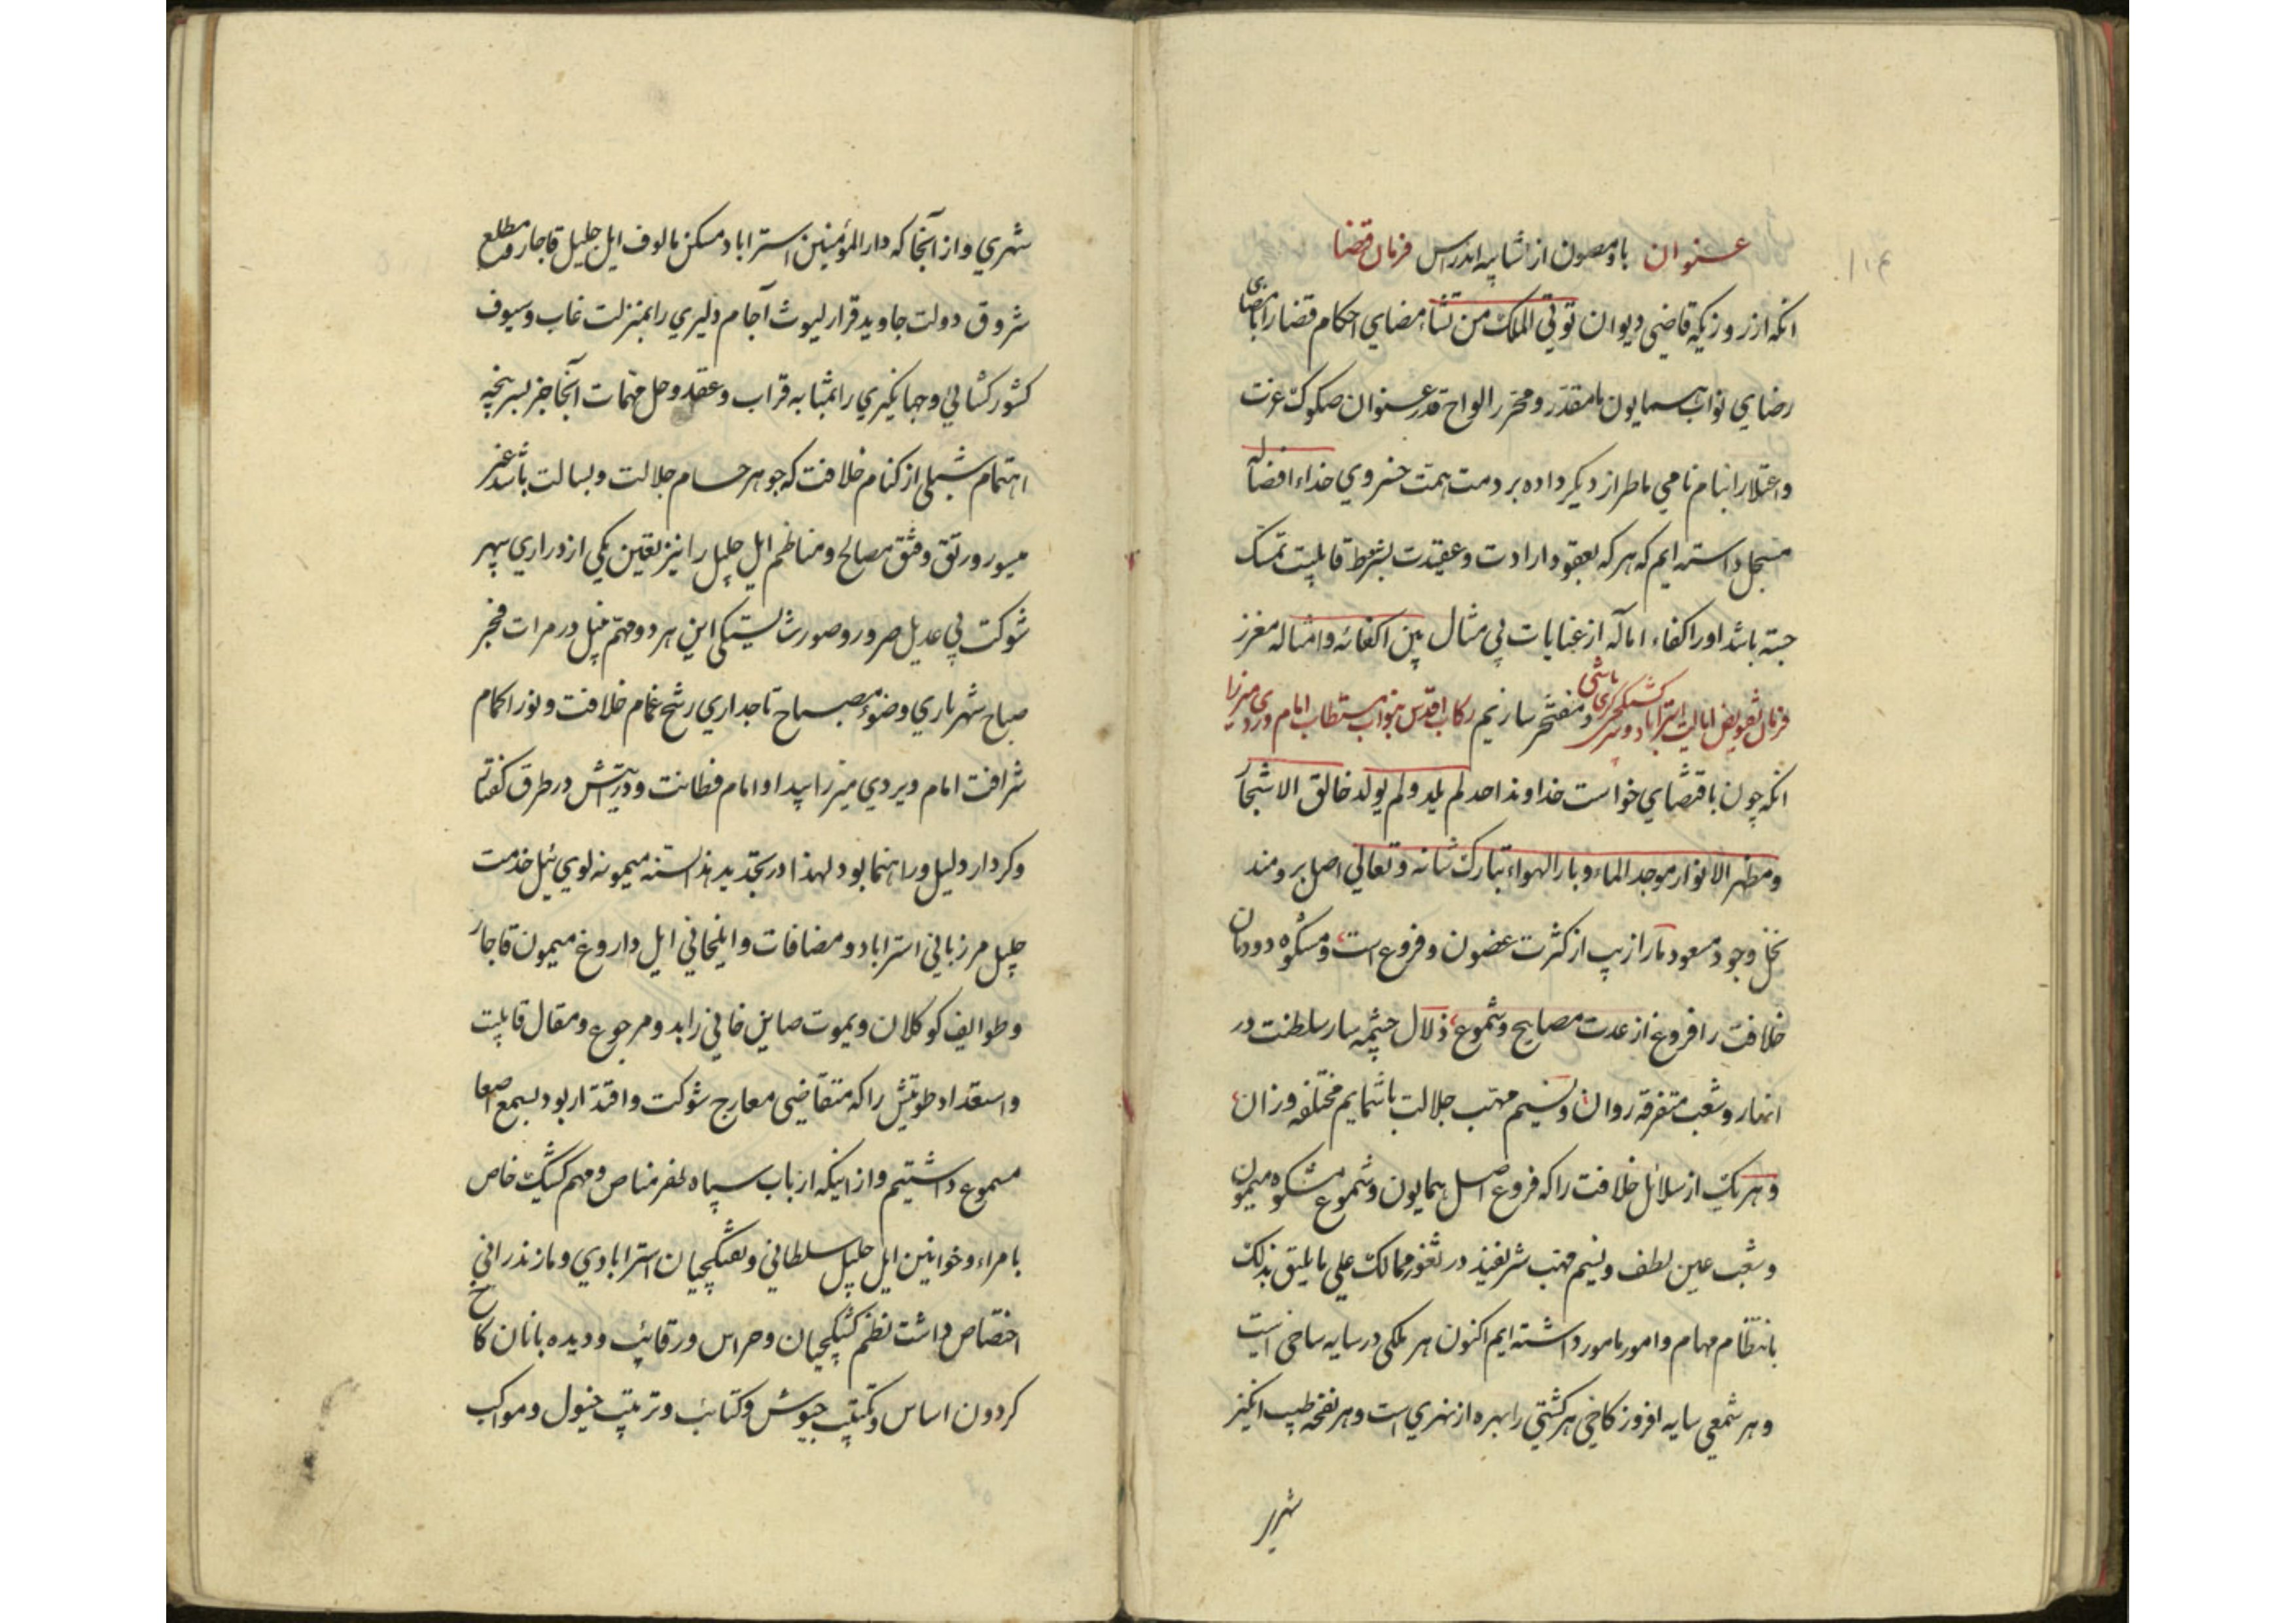 عنوان باد مصون از شایبه اندراس فرمان قضا
انکه از روزیکه قاضی دیوان تؤتی الملک من تشاء امضای احکام قضا را بامضای
رضای نواب همایون ما مقدر و محرر الواح قدر عنوان صکوک عزت
واعتلا را بنام نامی ما طراز دیگر داده بر ذمت همت خسروی خذاء افضاله
مسجل داشته ایم که هر که بعقود ارادت و عقیدت بشرط قابلیت تمسک
جسته باشد او را کفاء اماله از عنایات بی مثال بین اکفائه وامثاله معزز
و مفتخر سازیم
فرمان تفویض ایالت استراباد و کشیکچی باشی کری رکاب اقدس بنواب مستطاب امام ویردی میرزا
انکه چون باقتضای خواست خداوند احد لم یلد ولم یولد خالق الاشجار
ومظهر الانوار موجد الماء وبار الهواء تبارک شانه وتعالی اصل برومند
نخل وجود مسعود ما را زیب از کثرت غصون و فروع است ومشکوه دودمان
خلافت را فروغ از عدت مصابیح وشموع ذلال چشمه سار سلطنت در
انهار وشعب متفرقه روان ونسیم مهتب جلالت باشمایم مختلفه وزان
وهر یک از سلائل خلافت را که فروع اصل همایون وشموع مشکوه میمون
وشعب عین لطف ونسیم مهتب شریفند در ثغور ممالک علی مایلیق بذلک
بانتظام مهام وامور مامور داشته ایم اکنون هر ملکی در سایه ساخی است
وهر شمعی سایه افروز کاخی هر کشتی را بهره از نهری است وهر نفحه طیب انکیز
شهری
شهری واز انجا که دارالمؤمنین استراباد مسکن مالوف ایل جلیل قاجار ومطلع
شروق دولت جاوید قرار لیوث آجام دلیری را بمنزلت غاب وسیوف
کشورکشائی وجهانکیری را بمثابه قراب وعقد وحل مهمات آنجا جز بسرپنجه
اهتمام شبلی از کنام خلافت که جوهر حسام جلالت وبسالت باشد غیر
میسور ورتق وفتق مصالح ومناظم ایل جلیل را نیز تعین یکی از دراری سپهر
شوکت بی عدیل ضرور وصورت شایستکی این هر دو مهتم نبیل در مرات فجر
صباح شهریاری وضوء مصباح تاجداری رشح غمام خلافت ونور اکمام
شرافت امام ویردی میرزا پیدا وامام فطانت ودرایتش در طرق کفتار
وکردار دلیل وراهنما بود لهذا در تجدید هذا السنه میمونه لوی ئیل خدمت
جلیل مرزبانی استراباد ومضافات وایلخانی ایل داروغ میمون قاجار
وطوایف کوکلان ویموت صاین خانی را بدو مرجوع ومقال قابلیت
واستعداد طویتش را که متقاضی معارج شوکت واقتدار بود بسمع اصغا
مسموع داشتیم واز اینکه ارباب سپاه ظفر مناص ومهم کشیک خاص
بامراء وخوانین ایل جلیل سلطانی وتفنکچیان استرابادی ومازندرانی
اختصاص داشت نظم کشیکچیان وحراس ورقائب ودیده بانان کاخ
کردون اساس وتکتیب جیوش وکتائب وترتیب خیول ومواکب